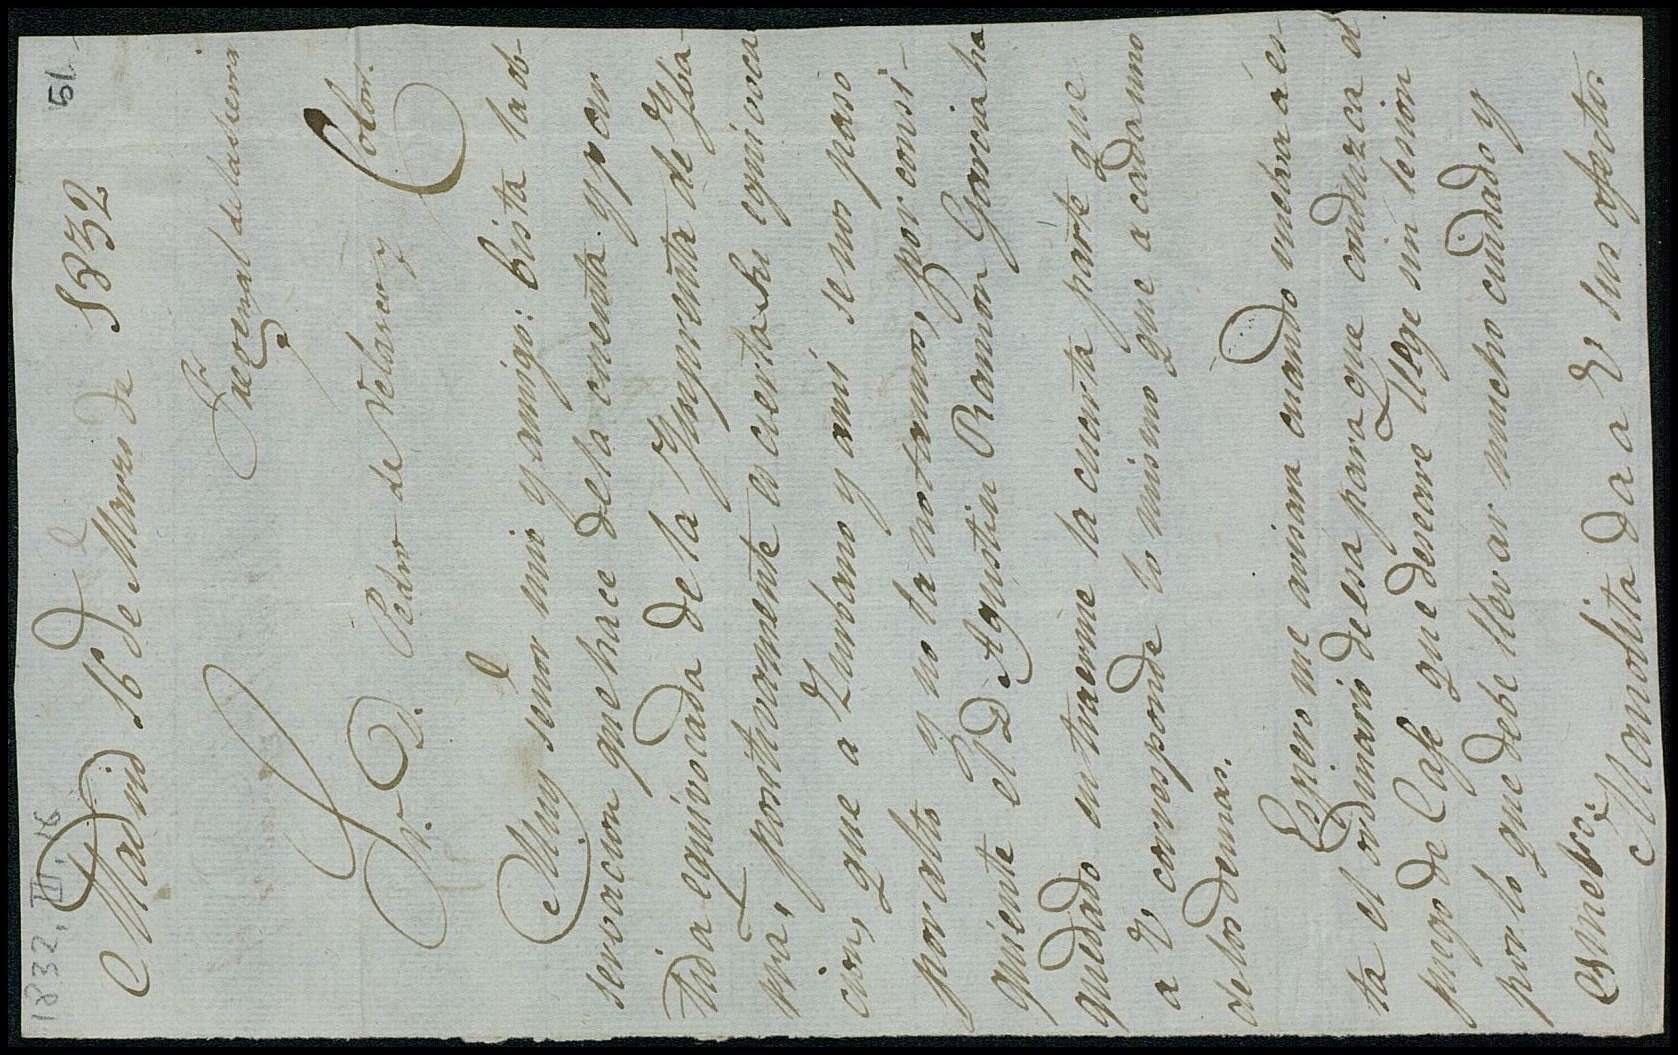 1832, III, 16
51
Madrid 16 de Marzo de 1832
Fregenal de la Sierra
Sr. D. Pedro de Velasco y Colon.
Muy señor mio y amigo: bista la ob-
servacion que hace de la cuenta y par
tida equivocada de la Ymprenta de Yba-
rra, positivamente es cierta su equivoca
cion, que a Zambrano y ami se nos paso
por alto y no la notamos, por consi-
guiente el D Agustin Ramon Garcia ha
quedado en traerme la cuarta parte que
a V corresponde lo mismo que a cada uno
de los demas.
Espero me avisara cuando vuelva a es-
ta el ordinario de esa para que conduzca el
juego de Cafe que deseare llege sin lesion
por lo que debe llevar mucho cuidado y
esmero.
Manolita da a V sus afectos